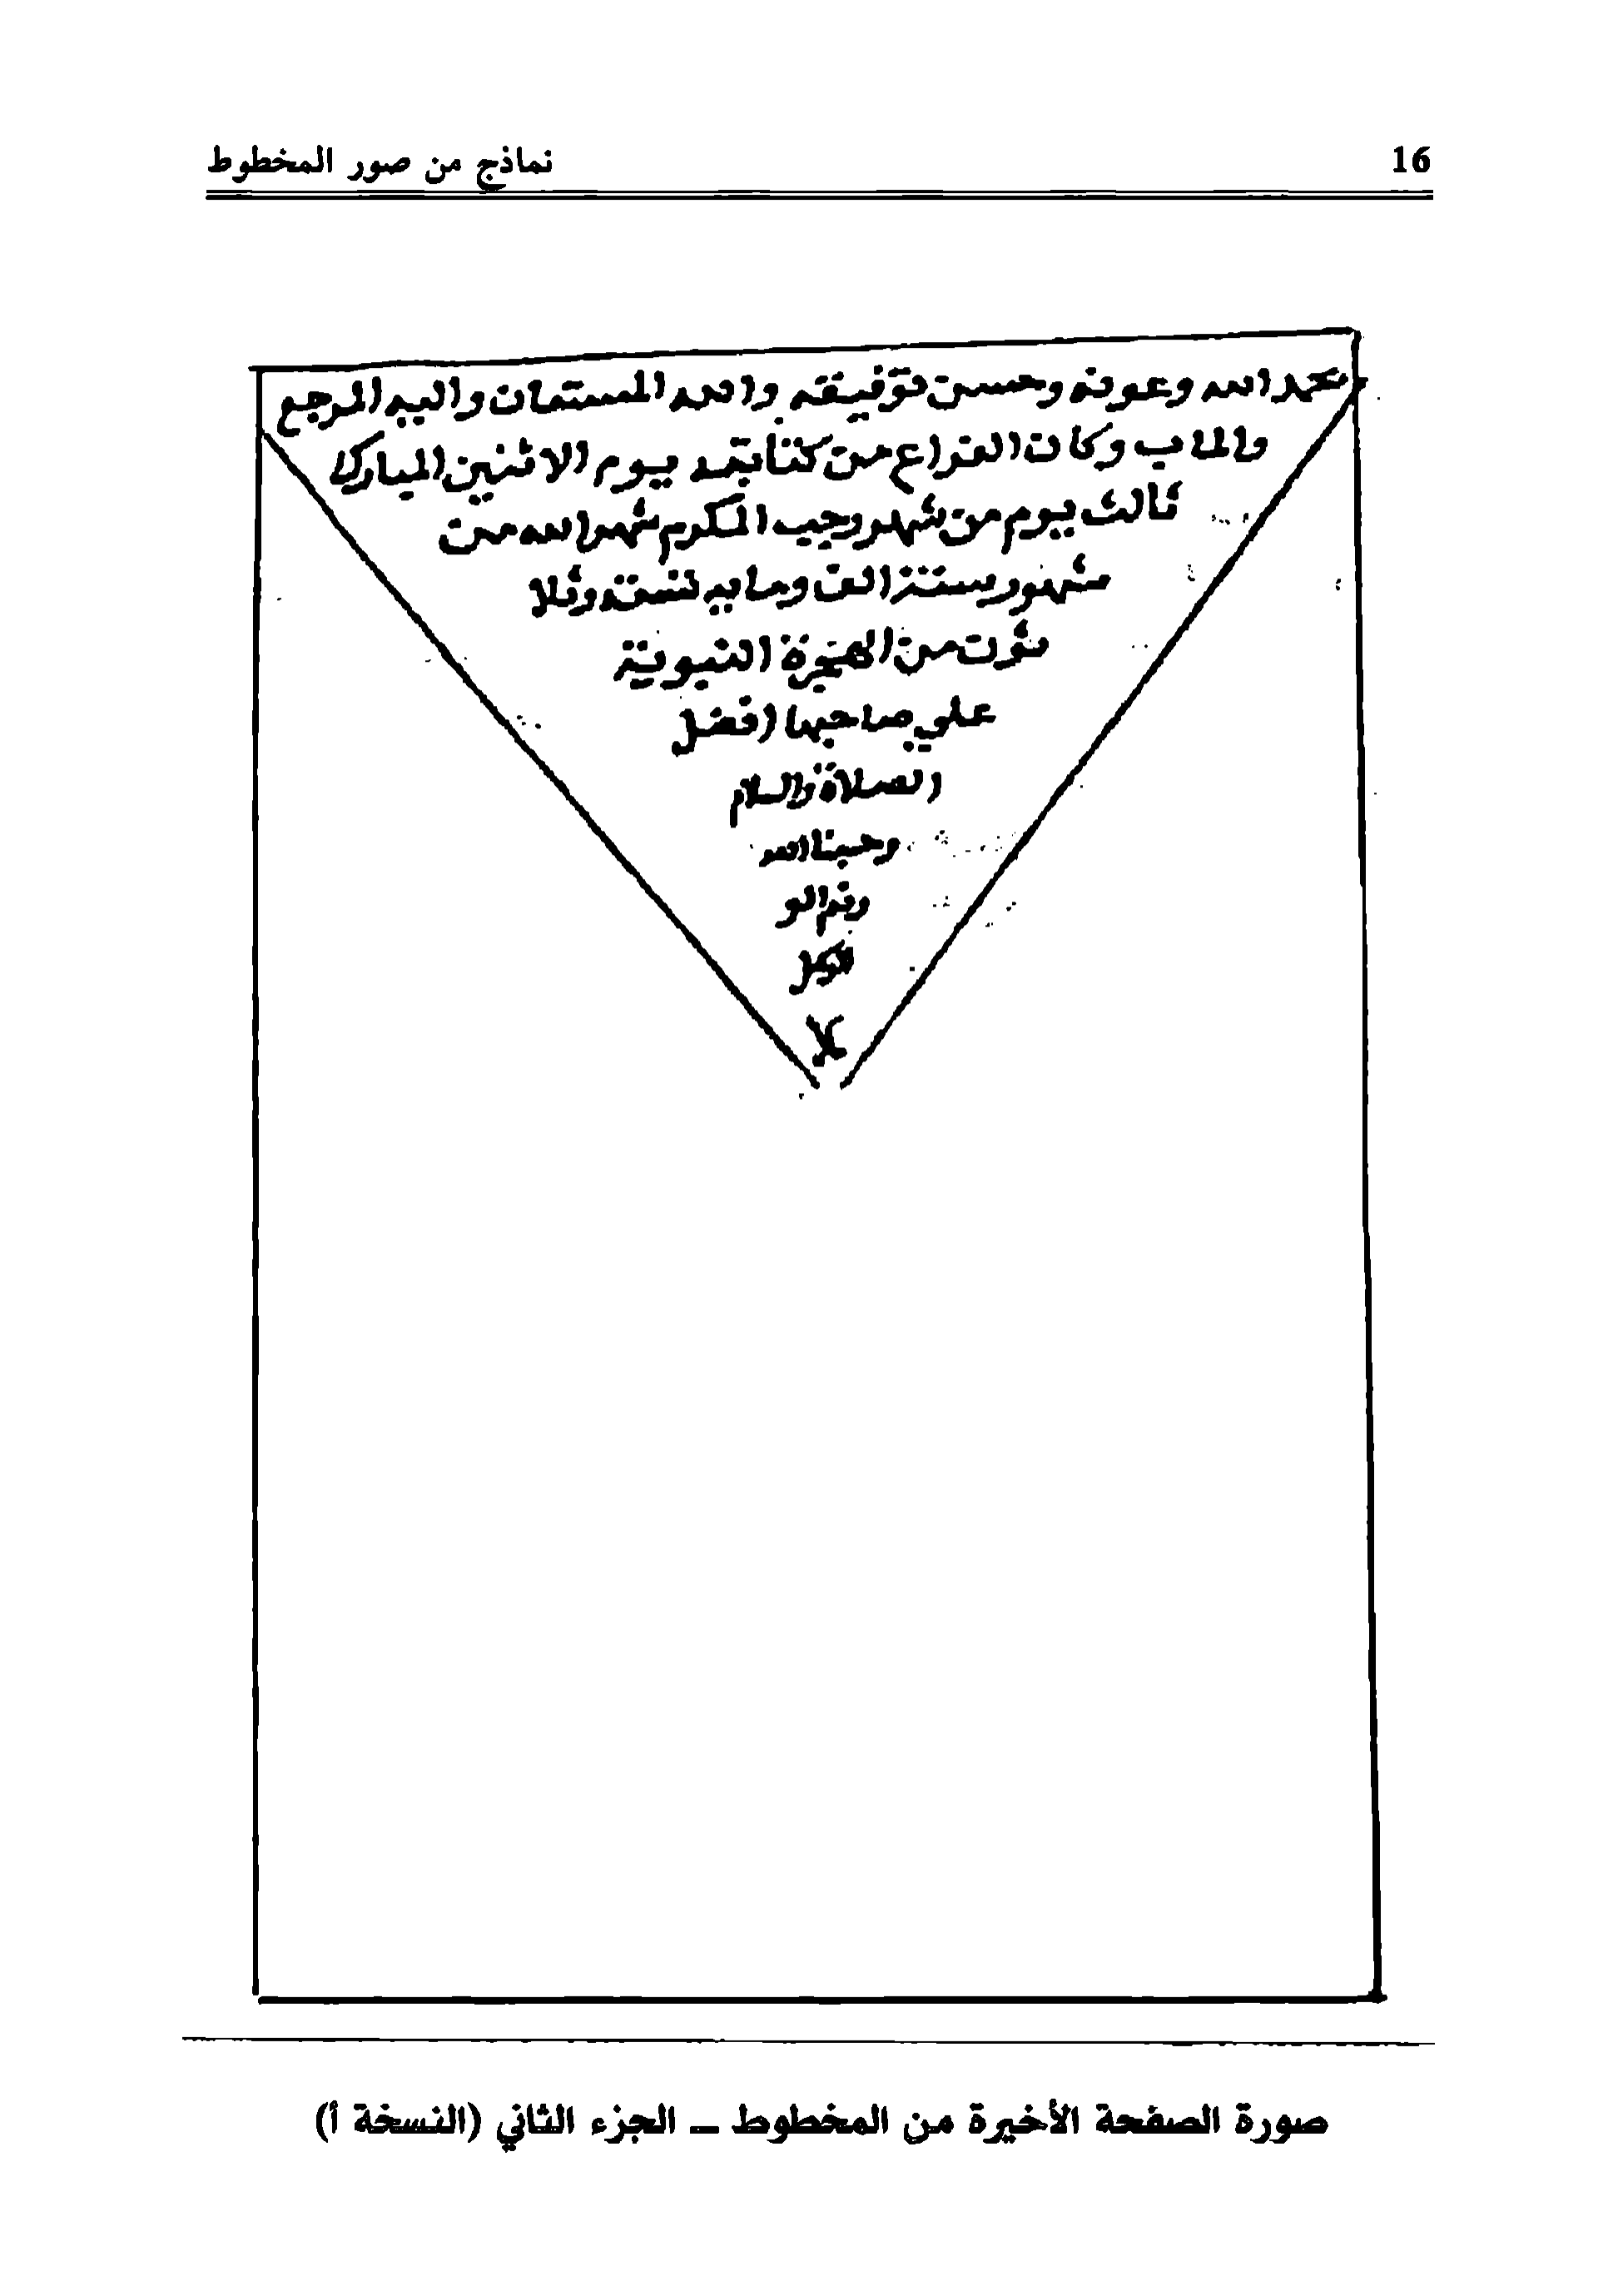 16
نماذج من صور المخطوط
بحمد الله وعونه وحسن توفيقه والله المستعان واليه المرجع
والماب وكان الفراغ من كتابته يوم الاثنين المبارك
ثالث يوم من شهر رجب المكرم شهر الله من
شهور سنة الف ومايه تسعة وثلا
ثون من الهجرة النبوية
علي صاحبها افضل
الصلاة والسلام
وحسبنا الله
ونعم الو
صورة الصفحة الأخيرة من المخطوط – الجزء الثاني (النسخة أ)